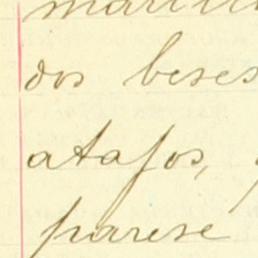 dos beses
atajos,
parese